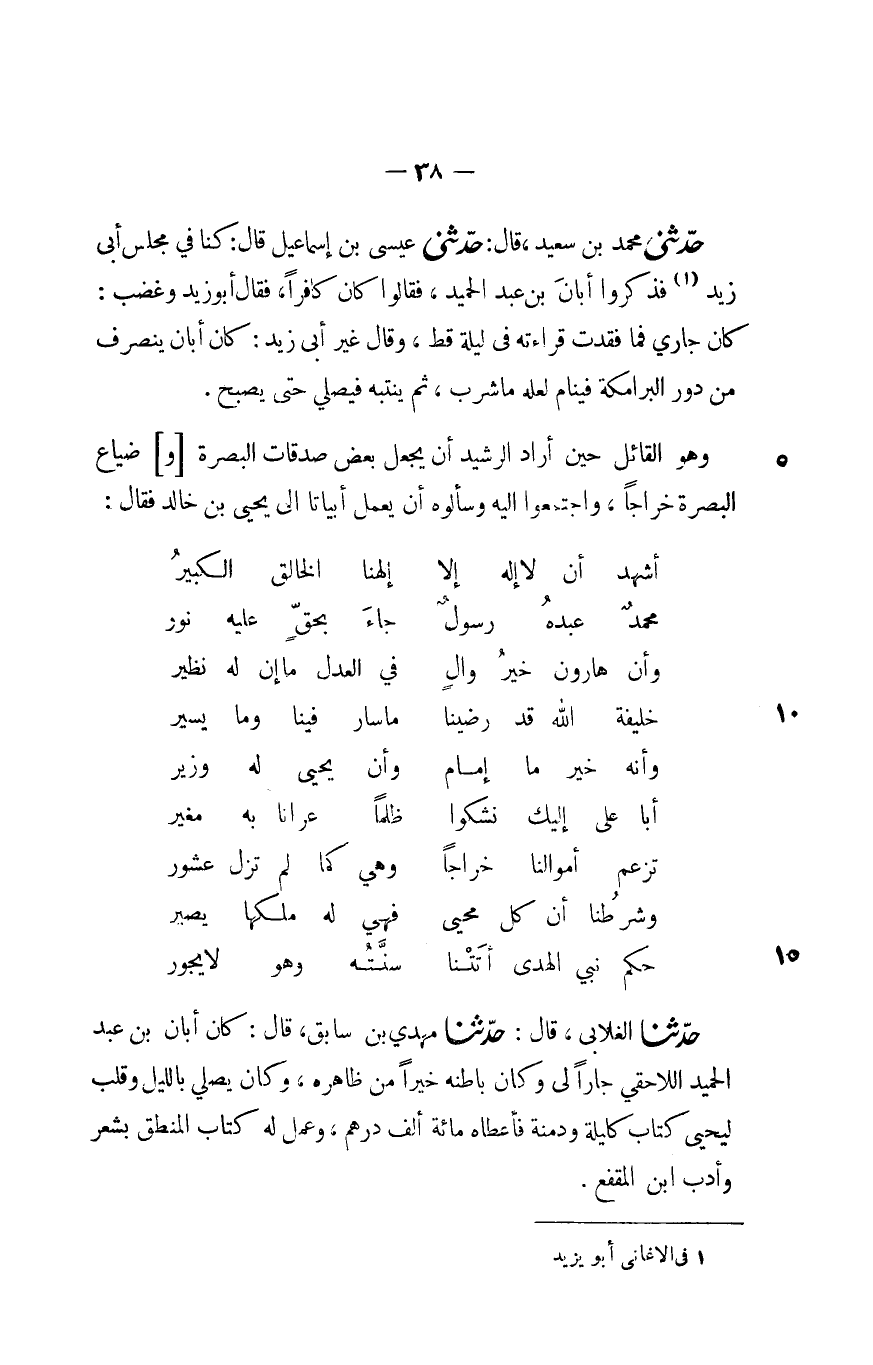 — ٣٨ —
حدّثني محمد بن سعيد ،قال: حدّثني عيسى بن إسماعيل قال: كنا في مجلس أبى
زيد (١) فذكروا أبانَ بن عبد الحميد ، فقالوا كان كافراً، فقال أبوزيد وغضب :
كان جاري فما فقدت قراءته فى ليلة قط ، وقال غير أبى زيد : كان أبان ينصرف
من دور البرامكة فينام لعله ماشرب ، ثم ينتبه فيصلي حتى يصبح .
٥ وهو القائل حين أراد الرشيد أن يجعل بعض صدقات البصرة [و] ضياع
البصرة خراجاً ، واجتمعوا اليه وسألوه أن يعمل أبياتا الى يحيى بن خالد فقال :
أشهد أن لاإله إلا إلهنا الخالق الكبيرُ
محمدٌ عبدهُ رسولٌ جاءَ بحقّ عليه نور
وأن هارون خيرُ والٍ في العدل ماإن له نظير
١٠ خليفة الله قد رضينا ماسار فينا وما يسير
وأنه خير ما إمام وأن يحيى له وزير
أبا على إليك نشكوا ظلماً عرانا به مغير
تزعم أموالنا خراجاً وهي كما لم تزل عشور
وشرطُنا أن كل محيى فهي له ملكها يصير
١٥ حكم نبي الهدى أتَتْنا سنَّتُه وهو لايجور
حدّثنا الغلابى ، قال : حدّثنا مهدي بن سابق، قال : كان أبان بن عبد
الحميد اللاحقي جاراً لى وكان باطنه خيراً من ظاهره ، وكان يصلي بالليل وقلب
ليحيى كتاب كليلة ودمنة فأعطاه مائة ألف درهم ، وعمل له كتاب المنطق بشعر
وأدب ابن المقفع .
١ فى الاغانى أبو يزيد